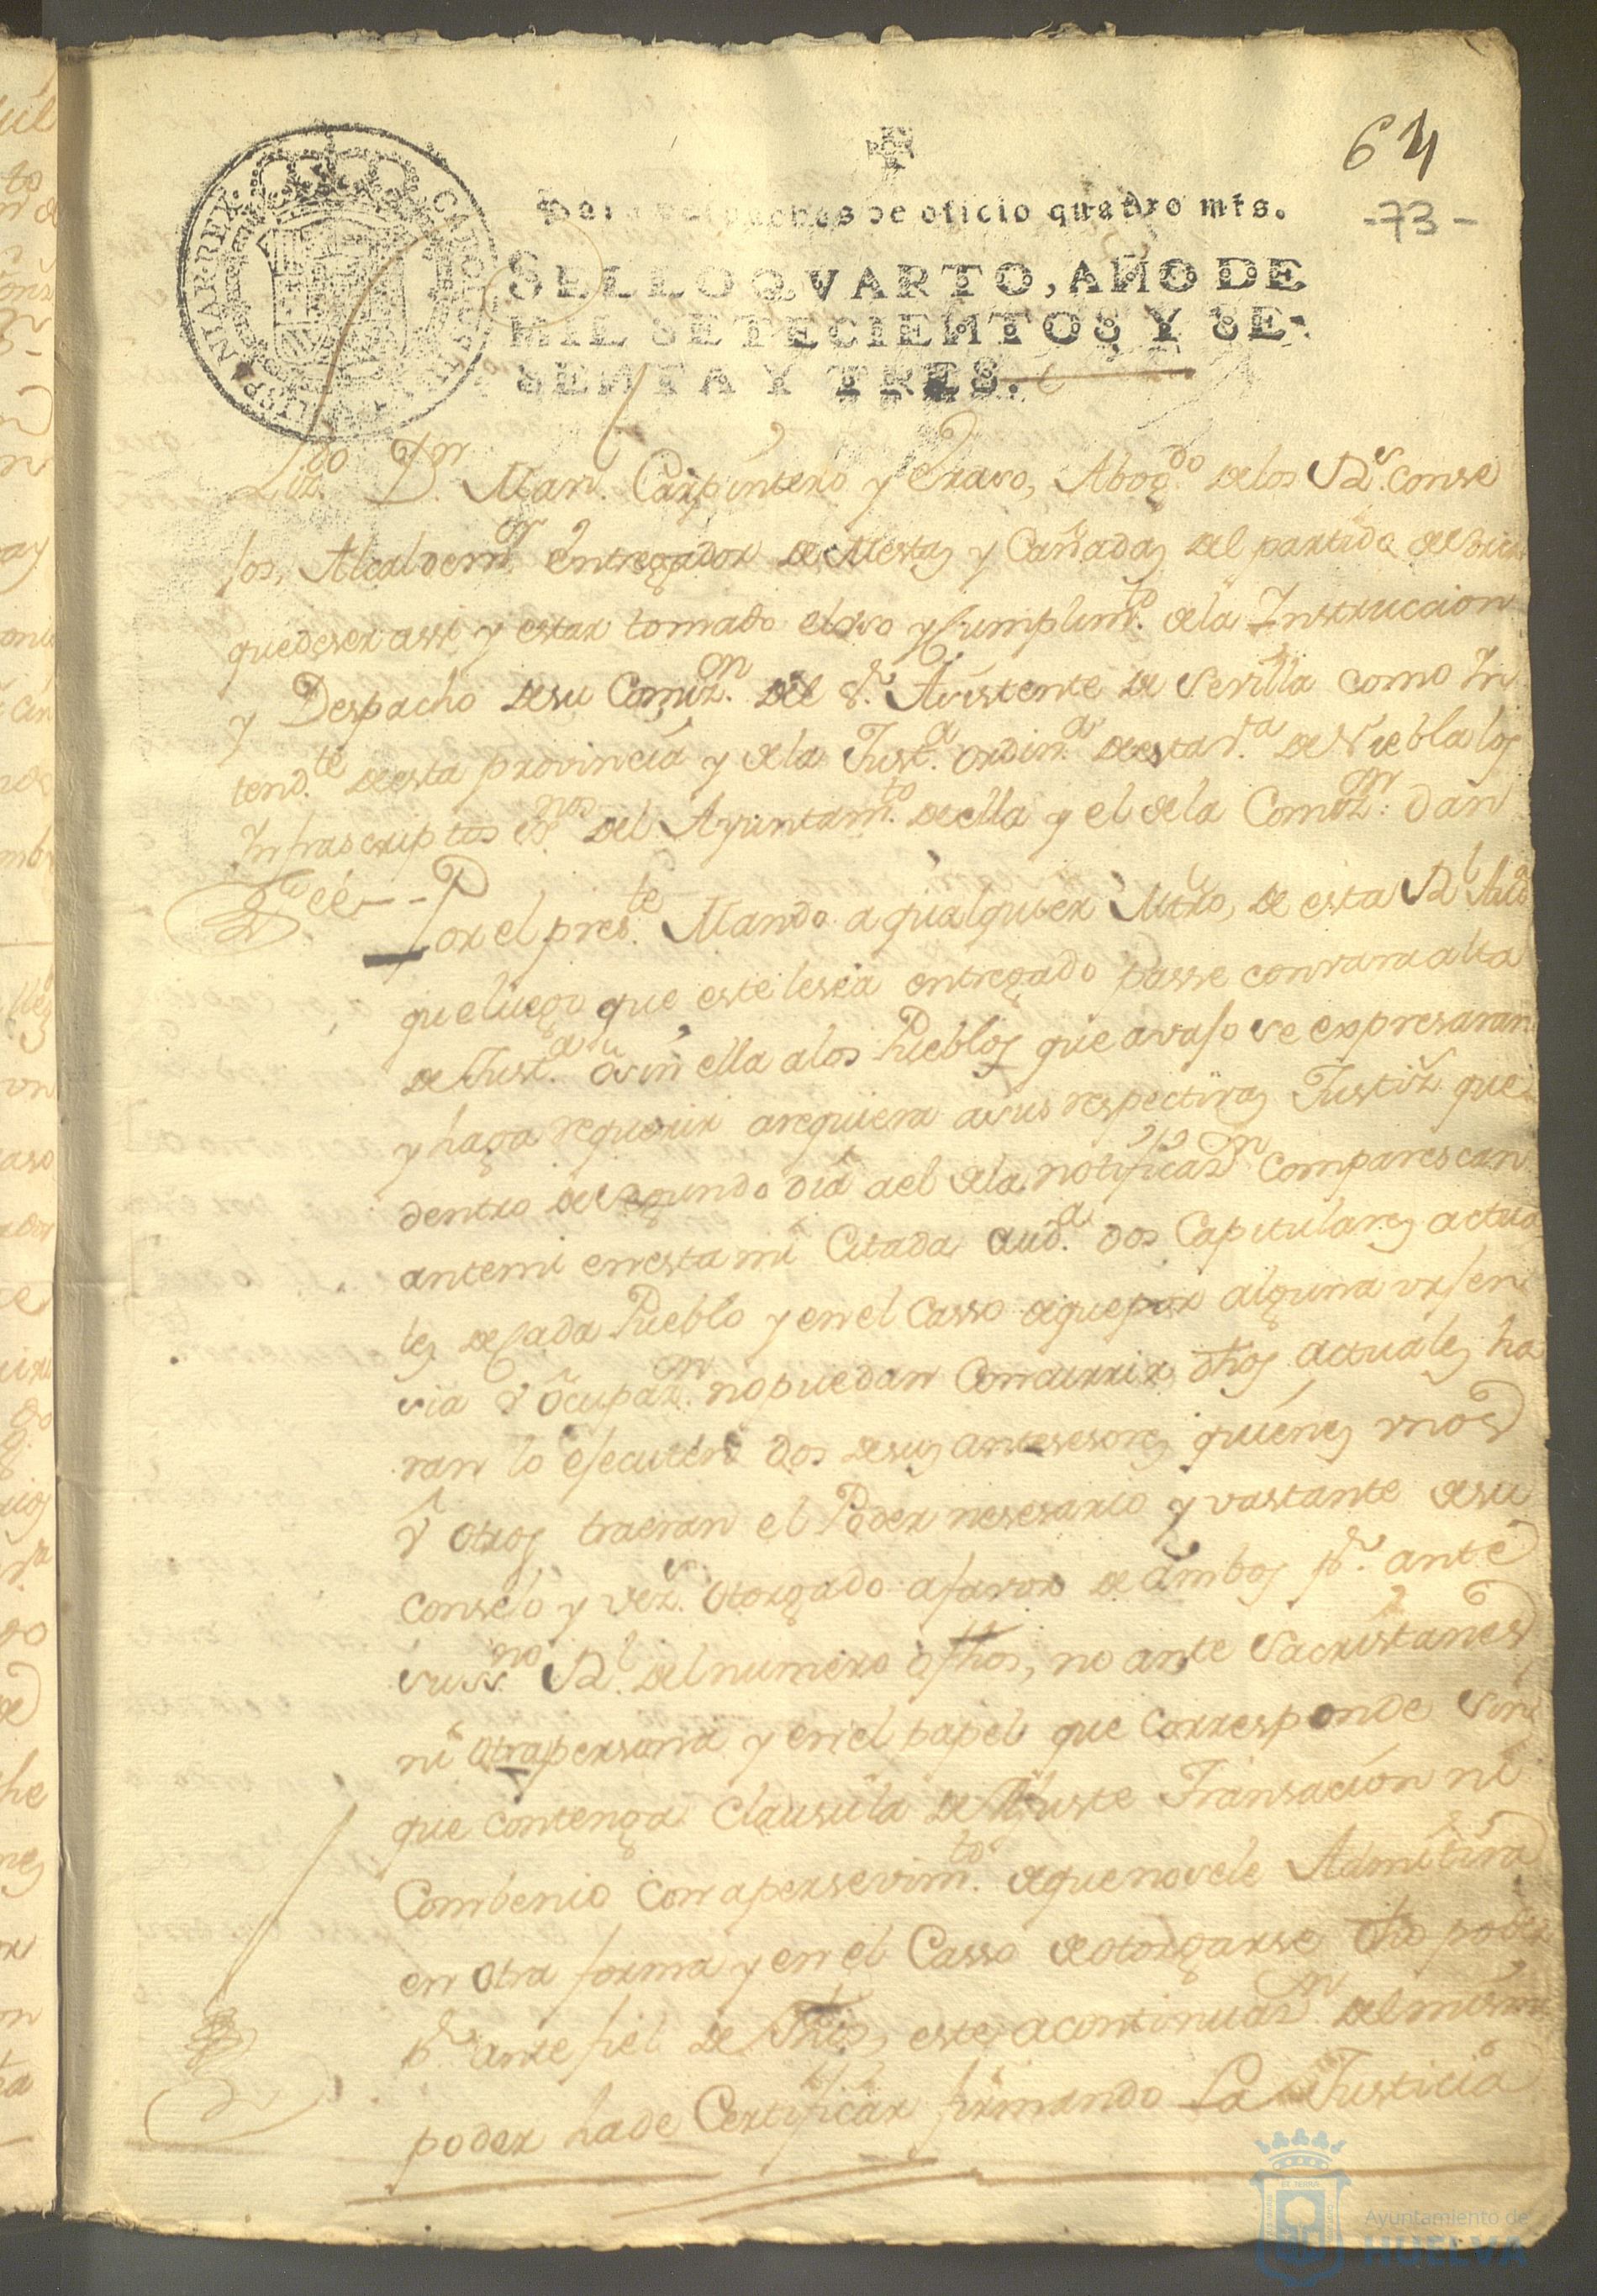 64
-73-
Para despachos de oficio quatro mrs.
SELLO QVARTO, AÑO DE
MIL SETECIENTOS Y SE-
SENTA Y TRES.
CAROLUS III D G HISPANIAR REX
Lizdo Dn Man. Carpintero y Bravo, Abogdo de los Rs. Conse
jos, Alcalde mr entregador de Mestas y Cañadas del partido de
que de ser assi y estar tomado el uso y cumplimto de la Instruccion
y Despacho de su Comizn del Sr. Asistente de Sevilla como In
tendte de esta provincia y de la Justa ordina de esta va de Niebla los
Infrascriptos ssnos del Ayuntamto de ella y el de la Comizn dan
Feé--
Por el preste Mando a qualquier Mtro, de esta Rl Auda
que luego que este le sea entregado passe con vara alta
de Justa o sin ella a los Pueblos que avajo se expresaran
y haga requerir a requiera a sus respectivas Justizs que
dentro de segundo dia a el de la notificazn comparescan
ante mi en esta mi Citada auda dos Capitulares actua
les de cada Pueblo y en el casso de que por alguna ausen
sia u ocupazn no puedan concurrir dhos actuales ha
ran lo executen dos de sus antesesores quienes unos
u otros traeran el Poder nesesario y vastante de su
consejo y vezs otorgado a favor de ambos pr. ante
su ssno Rl. del numero o fhos, no ante Sacristanes
ni otra persona y en el papel que corresponde sin
que contenga clausula de Ajuste Transacion ni
Combenio con apersevimto de que no se le Admitira
en otra forma y en el Casso de otorgarse dho poder
pr. ante fiel de fhos, este a continuazn del mismo
poder ha de Certificar firmando la Justicia
Ayuntamiento de
HUELVA